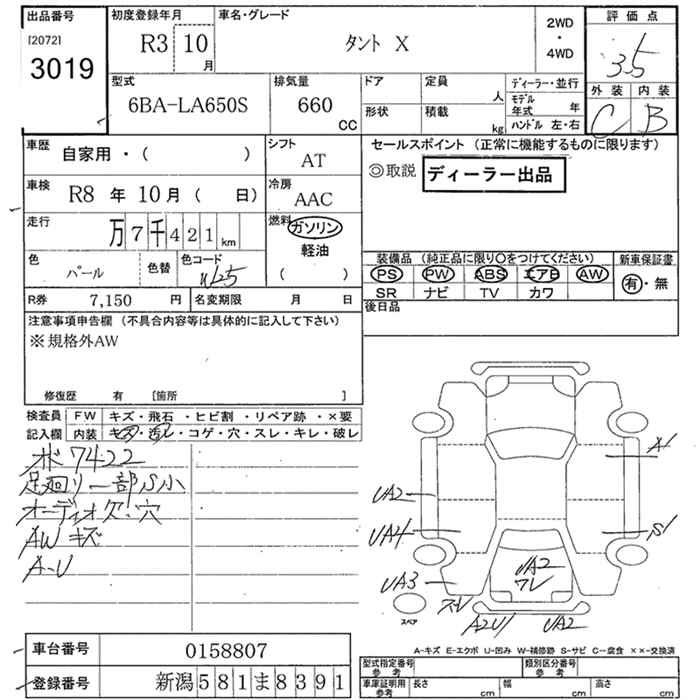 出品番号 初度登録年月 車名・グレード 2WD・4WD 評価点
[2072] R3 10月 タント X 3.5
3019 外装 内装
型式 排気量 ドア 定員 人 ディーラー・並行
6BA-LA650S 660 CC 形状 積載 kg モデル年式 年 C B
ハンドル 左・右
車歴 シフト セールスポイント (正常に機能するものに限ります)
自家用・( ) AT ◎取説 ディーラー出品
車検 冷房
R8 年 10 月 ( 日) AAC
走行 燃料
万 7 千 421 km ガソリン
軽油
( )
色 パール 色替 色コード W25
装備品 (純正品に限り○をつけてください) 新車保証書
PS PW ABS エアB AW 有・無
SR ナビ TV カワ
R券 7,150 円 名変期限 月 日
後日品
注意事項申告欄 (不具合内容等は具体的に記入して下さい)
※規格外AW
修復歴 有 [箇所 ]
検査員 FW キズ・飛石・ヒビ割・リペア跡・×要
記入欄 内装 キズ・汚レ・コゲ・穴・スレ・キレ・破レ
ボ 7422
足廻り一部S小
オーディオ欠.穴
AW キズ
A-U
A1
UA2
UA4
S1
UA3
スレ
UA2
ワレ
A2U1
UA2
スペア
A-キズ E-エクボ U-凹み W-補修跡 S-サビ C-腐食 ××-交換済
車台番号 0158807
登録番号 新潟 581 ま 8391
型式指定番号 参考 類別区分番号 参考
車庫証明用 参考 長さ cm 幅 cm 高さ cm